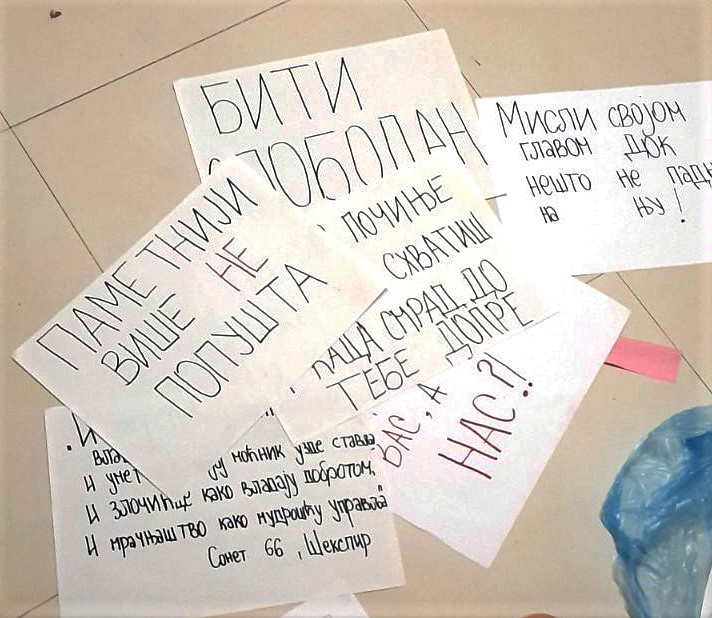 БИТИ
СЛОБОДАН
Мисли својом
главом док
нешто не падн
на њу!
ПАМЕТНИЈИ
ВИШЕ НЕ
ПОПУШТА
ПОЧИЊЕ
СХВАТИШ
КАДА СМРАД ДО
ТЕБЕ ДОПРЕ
ВАС, А
НАС?!
моћник узде ставља
И умет
И злочинце како владају добротом,
И мрачњаштво како мудрошћу управља"
Сонет 66, Шекспир